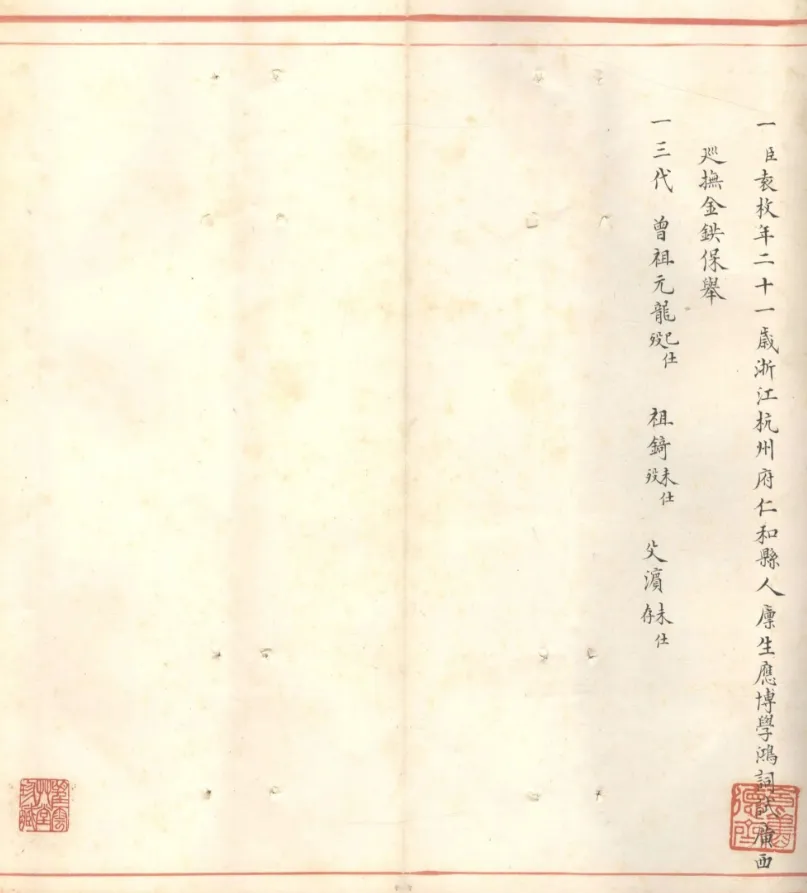 一臣袁枚年二十一歲浙江杭州府仁和縣人廩生應博學鴻詞試廣西
巡撫金鉷保舉
一三代 曾祖元龍已仕歿 祖錡未仕歿 父濱未仕存